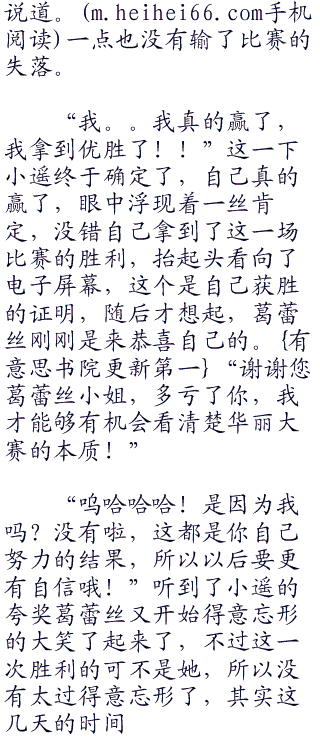 说道。(m.heihei66.com手机
阅读)一点也没有输了比赛的
失落。
“我。。我真的赢了，
我拿到优胜了！！”这一下
小遥终于确定了，自己真的
赢了，眼中浮现着一丝肯
定，没错自己拿到了这一场
比赛的胜利，抬起头看向了
电子屏幕，这个是自己获胜
的证明，随后才想起，葛蕾
丝刚刚是来恭喜自己的。{有
意思书院更新第一}“谢谢您
葛蕾丝小姐，多亏了你，我
才能够有机会看清楚华丽大
赛的本质！”
“呜哈哈哈！是因为我
吗？没有啦，这都是你自己
努力的结果，所以以后要更
有自信哦！”听到了小遥的
夸奖葛蕾丝又开始得意忘形
的大笑了起来了，不过这一
次胜利的可不是她，所以没
有太过得意忘形了，其实这
几天的时间